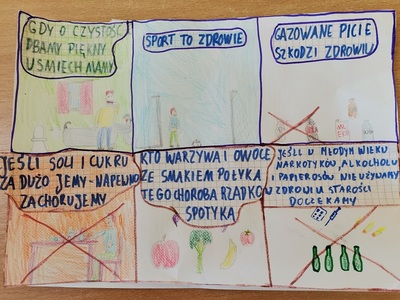 GDY O CZYSTOŚĆ
DBAMY PIĘKNY
UŚMIECH MAMY
SPORT TO ZDROWIE
GAZOWANE PICIE
SZKODZI ZDROWIU
JEŚLI SOLI I CUKRU
ZA DUŻO JEMY-NAPEWNO
ZACHORUJEMY
KTO WARZYWA I OWOCE
ZE SMAKIEM POŁYKA
TEGO CHOROBA RZADKO
SPOTYKA
JEŚLI W MŁODYM WIEKU
NARKOTYKÓW, ALKOCHOLU
I PAPIEROSÓW NIE UŻYWAMY
W ZDROWIU STAROŚCI
DOCZEKAMY